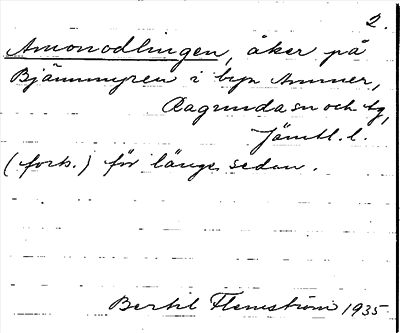 2.
Amonodlingen, åker på
Bjännmyren i byn Ammer,
Ragunda sn och tg,
Jämtl. l.
(forts.) för länge sedan.
Bertil Flemström 1935